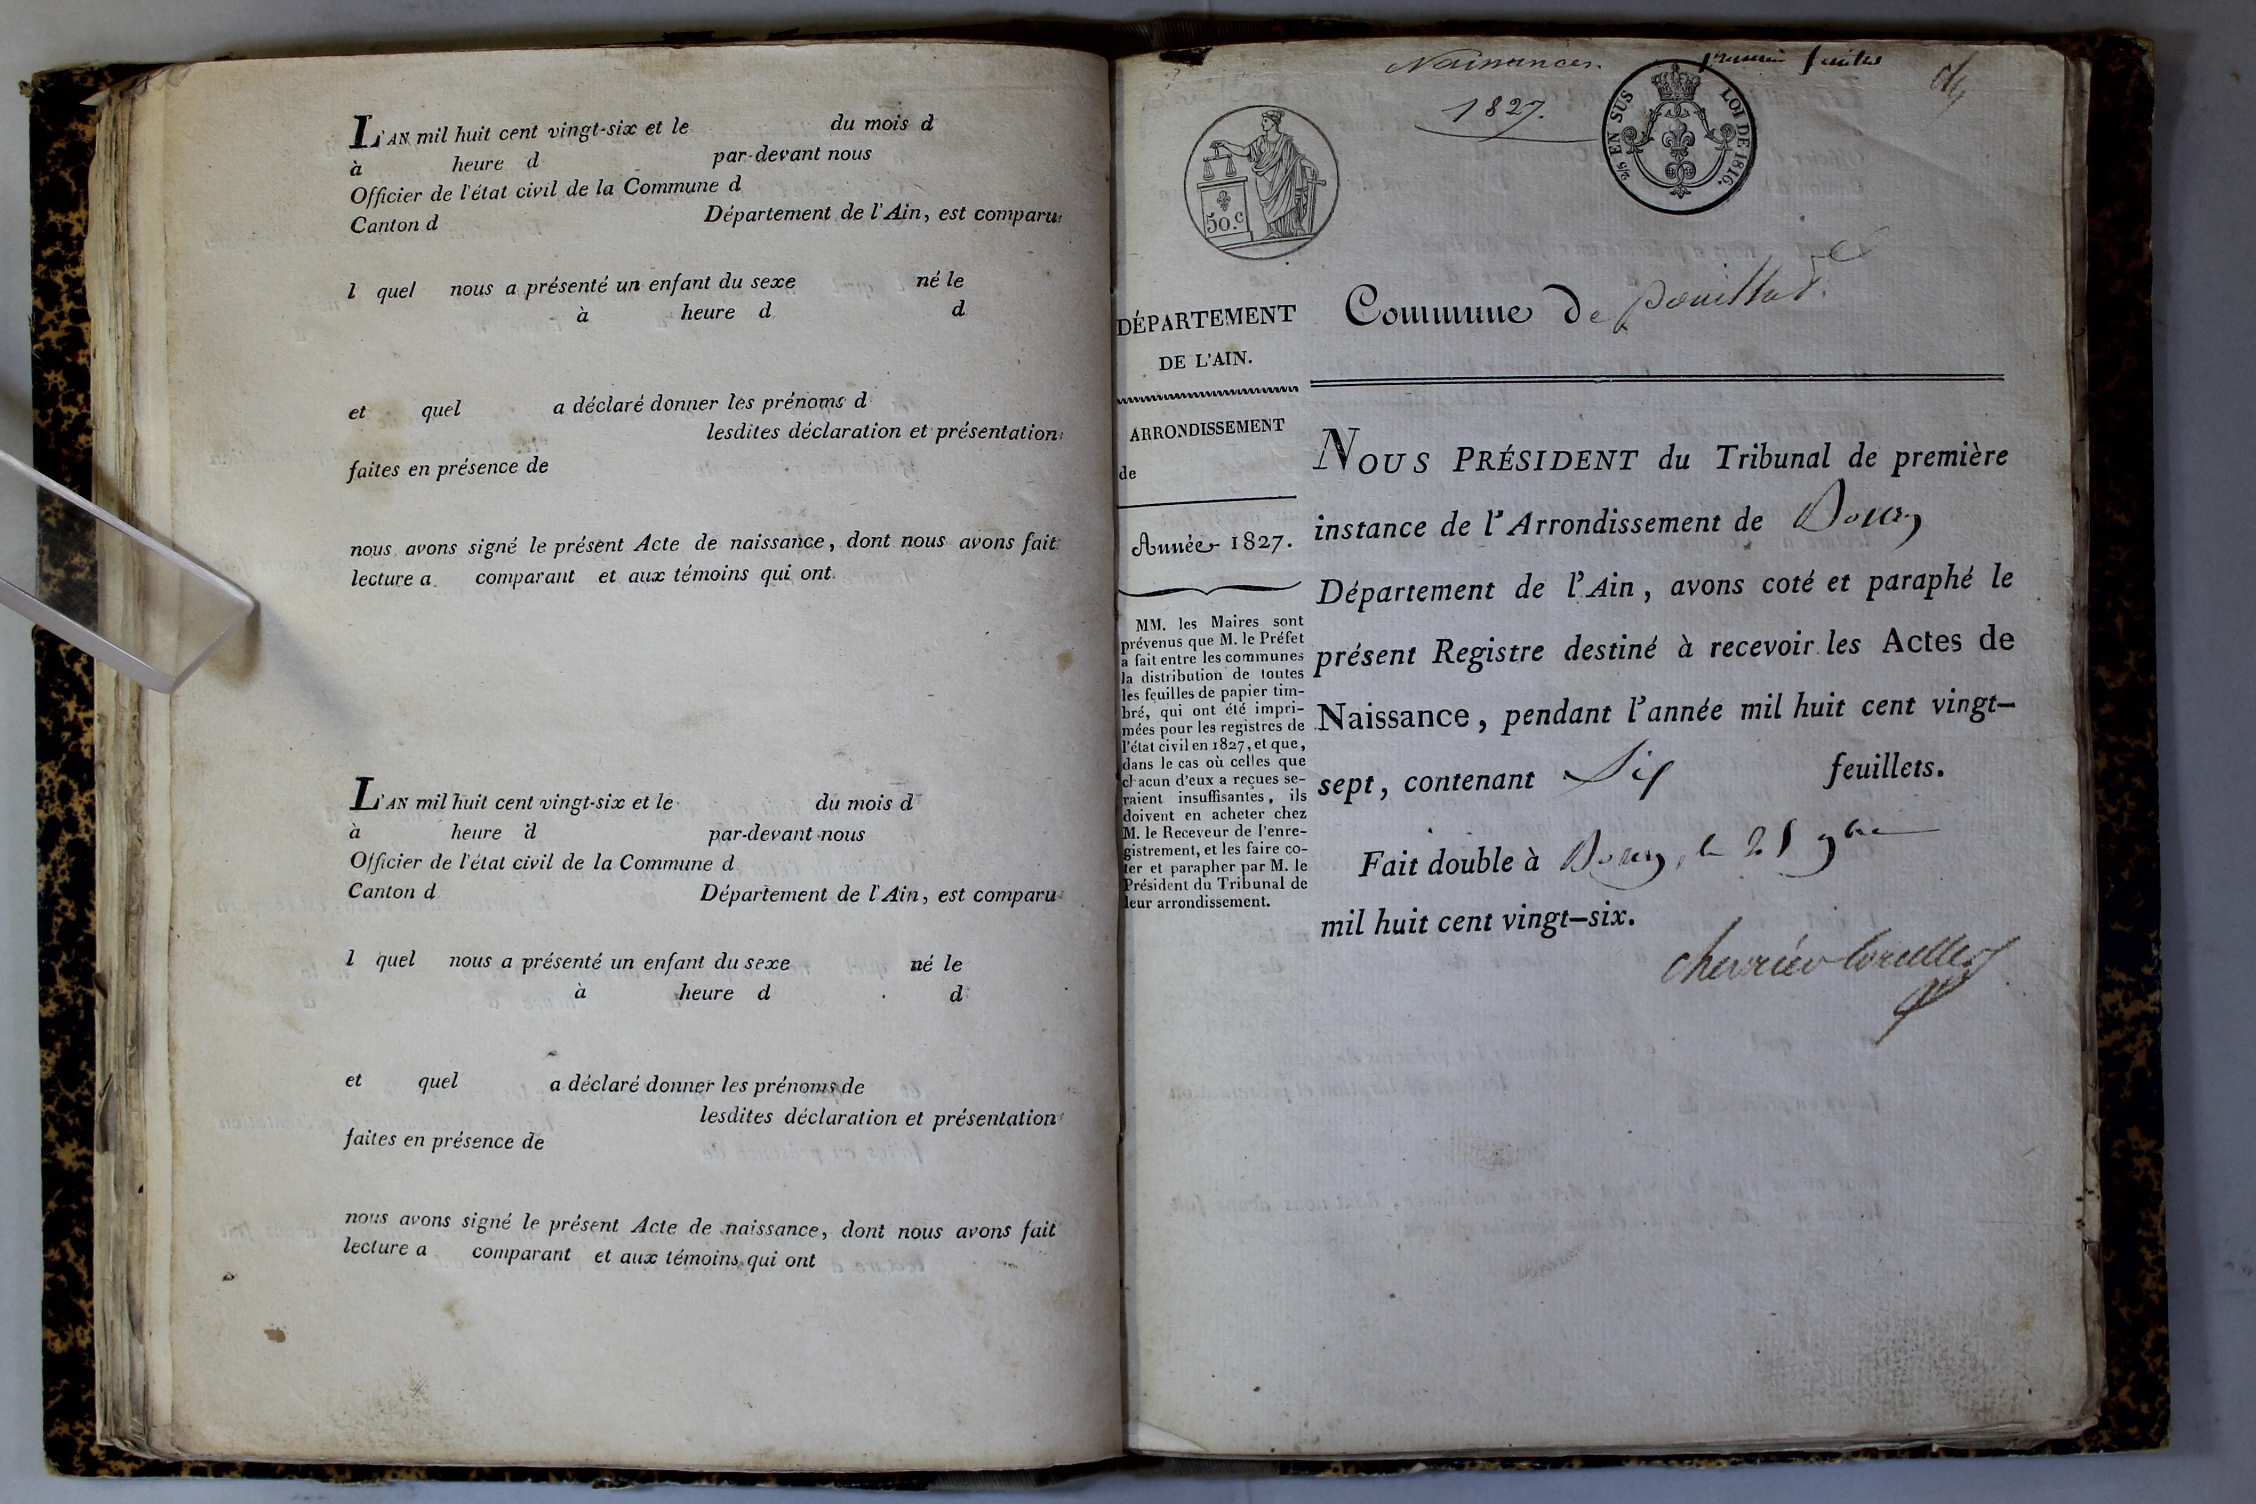 L'AN mil huit cent vingt-six et le du mois d
à heure d par-devant nous
Officier de l'état civil de la Commune d
Canton d Département de l'Ain, est comparu
l quel nous a présenté un enfant du sexe né le
à heure d d
et quel a déclaré donner les prénoms d
lesdites déclaration et présentation
faites en présence de
nous avons signé le présent Acte de naissance, dont nous avons fait
lecture a comparant et aux témoins qui ont
L'AN mil huit cent vingt-six et le du mois d
à heure d par-devant nous
Officier de l'état civil de la Commune d
Canton d Département de l'Ain, est comparu
l quel nous a présenté un enfant du sexe né le
à heure d d
et quel a déclaré donner les prénoms de
lesdites déclaration et présentation
faites en présence de
nous avons signé le présent Acte de naissance, dont nous avons fait
lecture a comparant et aux témoins qui ont
Naissances.
1827.
premier feuillet
50.c
2/5 EN SUS LOI DE 1816.
DÉPARTEMENT
DE L'AIN.
ARRONDISSEMENT
de
Année 1827.
MM. les Maires sont
prévenus que M. le Préfet
a fait entre les communes
la distribution de toutes
les feuilles de papier tim-
bré, qui ont été impri-
mées pour les registres de
l'état civil en 1827, et que,
dans le cas où celles que
chacun d'eux a reçues se-
raient insuffisantes, ils
doivent en acheter chez
M. le Receveur de l'enre-
gistrement, et les faire co-
ter et parapher par M. le
Président du Tribunal de
leur arrondissement.
Commune de pouillat
NOUS PRÉSIDENT du Tribunal de première
instance de l'Arrondissement de Bourg
Département de l'Ain, avons coté et paraphé le
présent Registre destiné à recevoir les Actes de
Naissance, pendant l'année mil huit cent vingt-
sept, contenant Six feuillets.
Fait double à Bourg, le 25 9bre
mil huit cent vingt-six.